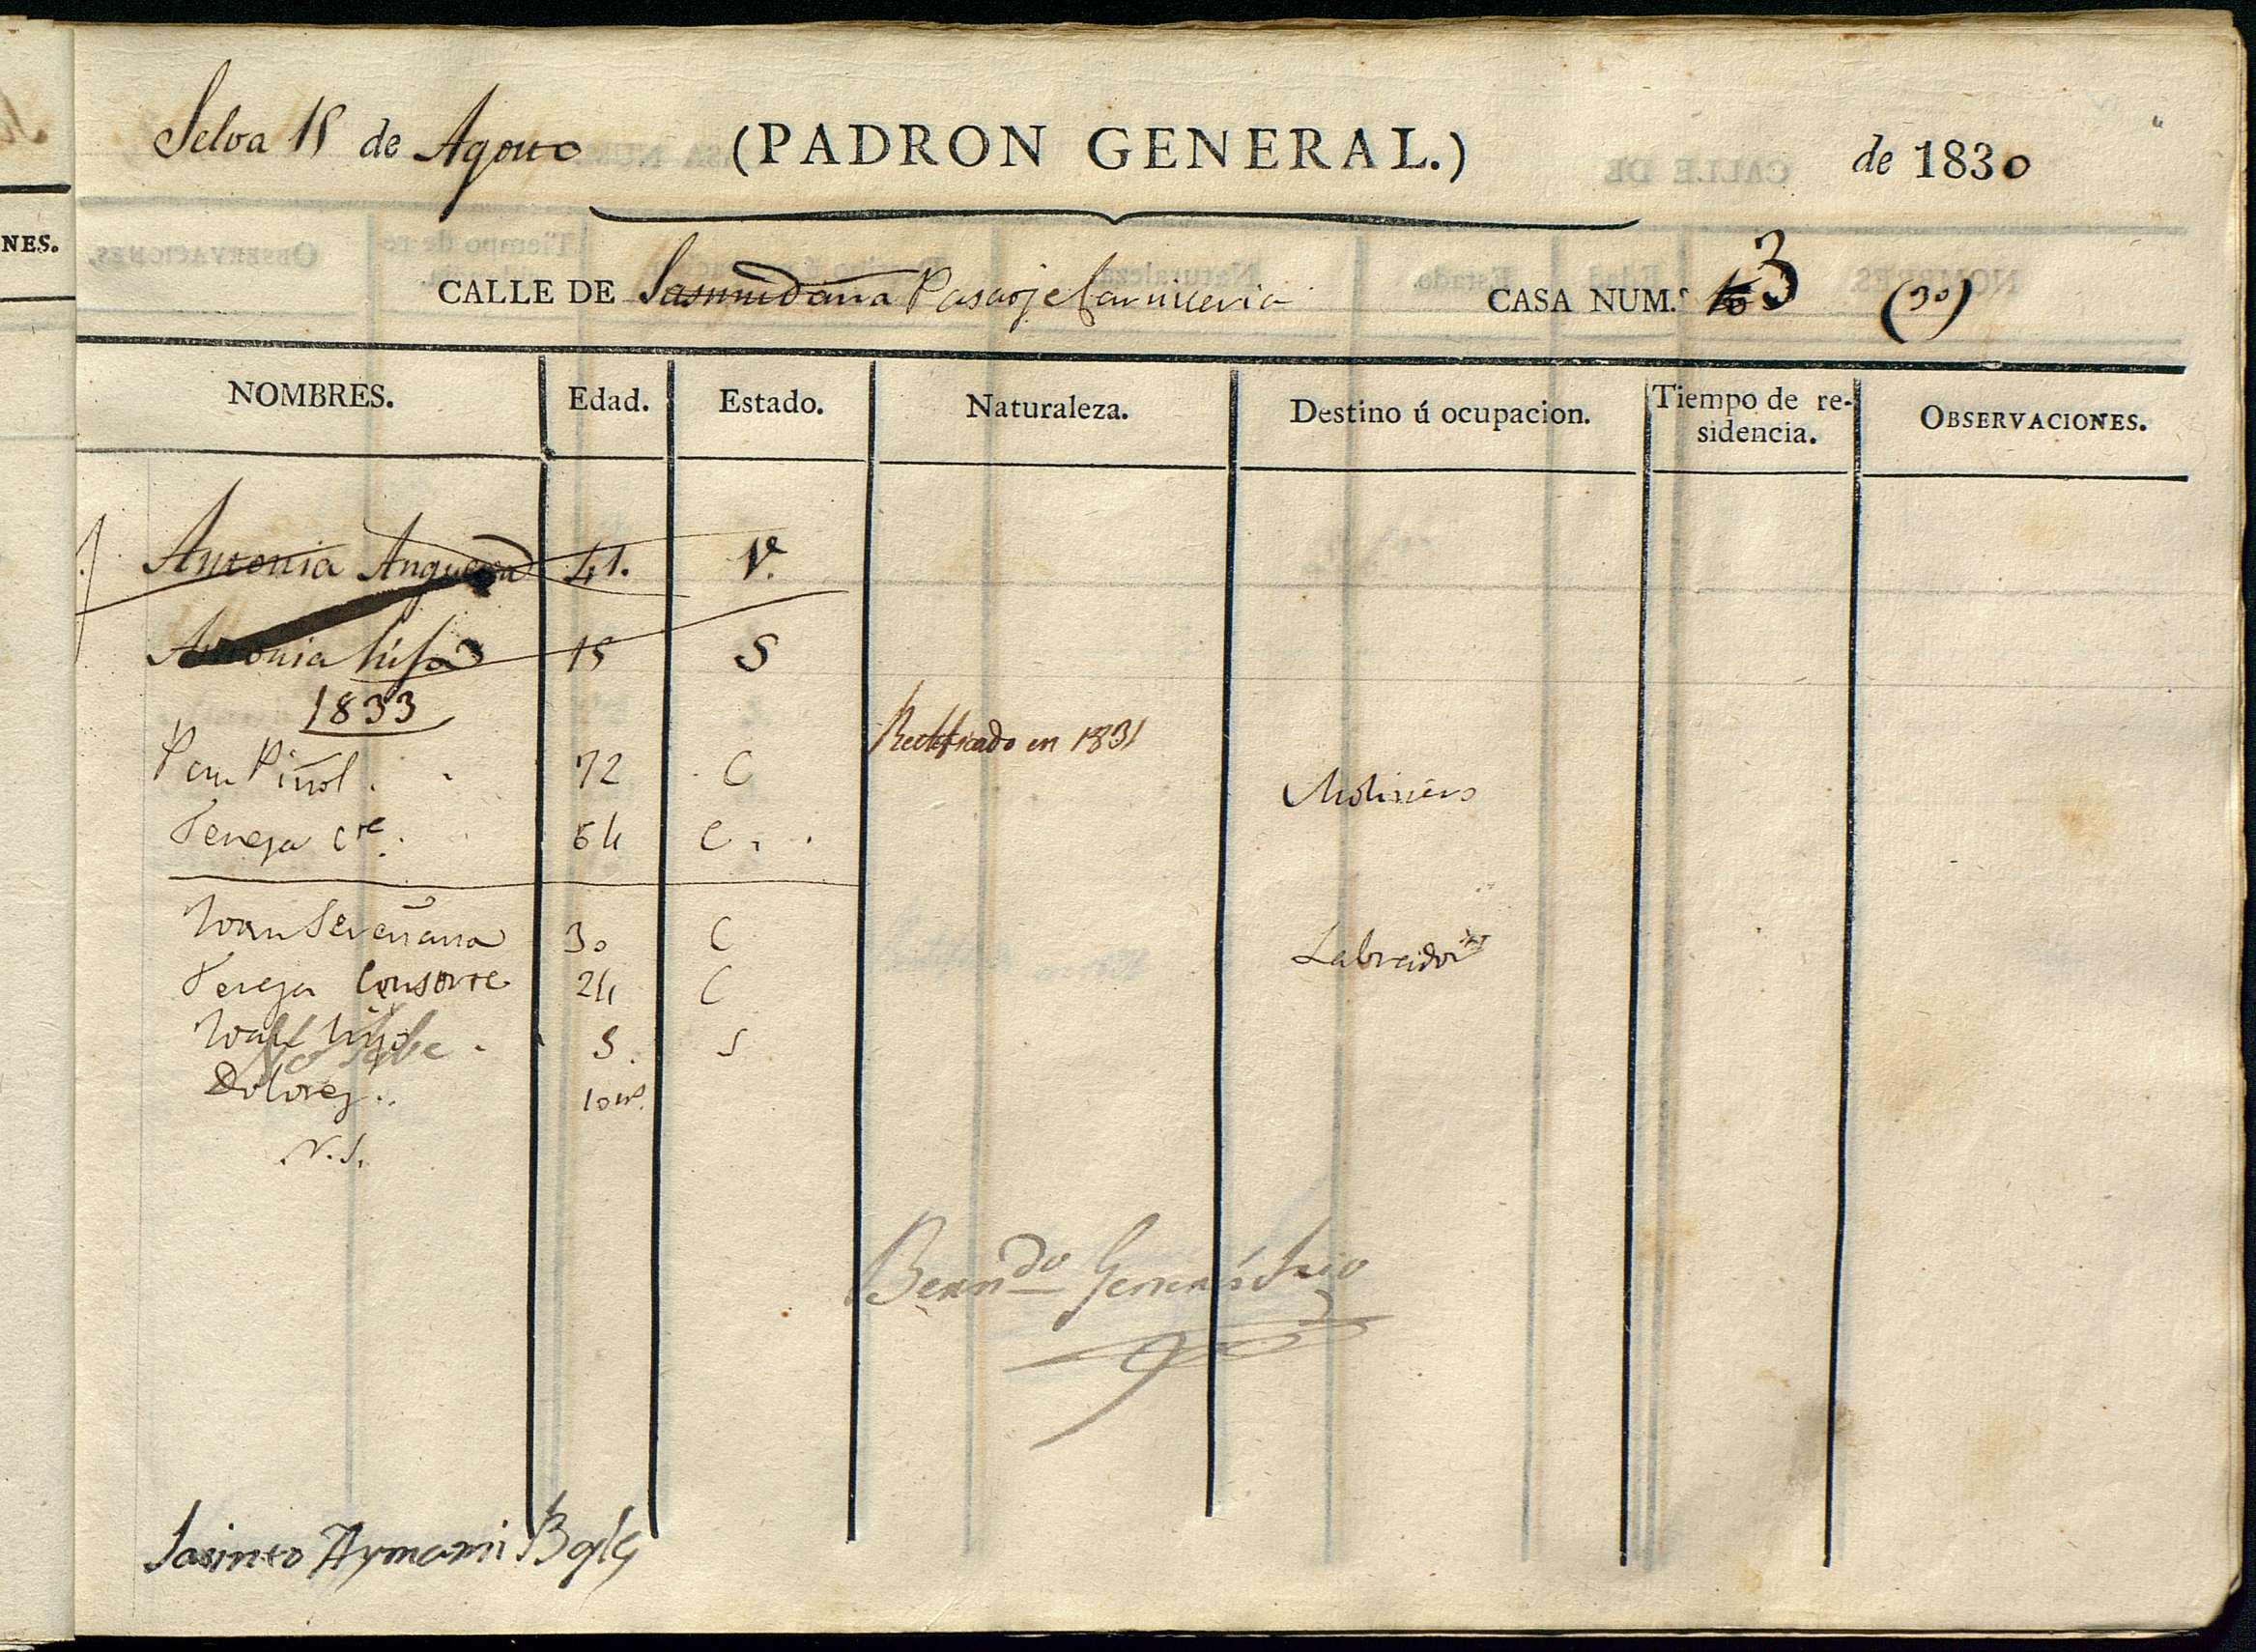 Selva 15 de Agosto (PADRON GENERAL.) de 1830
CALLE DE Pasaje Carniceria CASA NUM.º 3 (30)
NES.
NOMBRES. Edad. Estado. Naturaleza. Destino ú ocupacion. Tiempo de re-
sidencia. OBSERVACIONES.
Antonia Anguera 41. V.
Antonia hija 15 S
1833
Rectificado en 1831
Pau Piñol. 72 C Molinero
Teresa cte. 64 C.
Juan 30 C Labrador
Teresa Consorte 24 C
Juan hijo. 3. S
No sabe
Dolores.. 10 ms.
N.S.
Berndo
Jasinto Aymami Bayle